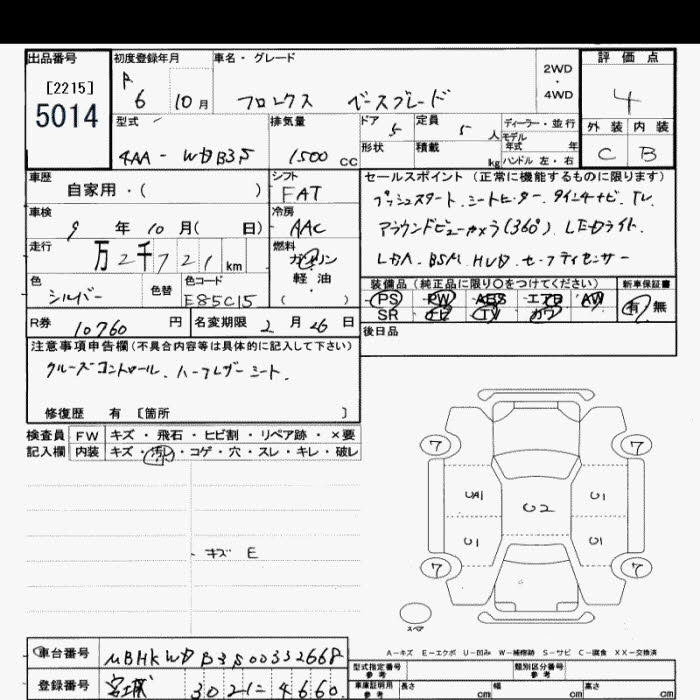 出品番号 初度登録年月 車名・グレード 評価点
[2215]
5014
R 6 10月 フロンクス ベースグレード
2WD
・
4WD
4
外装 内装
C B
型式 排気量 ドア 定員 ディーラー・並行
4AA-WDB3S 1500 CC 5 5 人 モデル年式 年
形状 積載 kg ハンドル 左・右
車歴 シフト セールスポイント (正常に機能するものに限ります)
自家用・( ) FAT
プッシュスタート.シートヒーター.9インチナビ.TV.
車検 冷房
9 年 10 月( 日) AAC
アラウンドビューカメラ(360°) LEDライト.
走行 燃料
万2千721 km ガソリン
軽油
( )
LDA.BSM.HUD.セーフティセンサー
色 色替 色コード
シルバー E85C15
装備品 (純正品に限り○をつけてください) 新車保証書
PS PW ABS エアB AW 有・無
SR ナビ TV カワ
R券 10760 円 名変期限 2 月 26 日
後日品
注意事項申告欄 (不具合内容等は具体的に記入して下さい)
クルーズコントロール.ハーフレザーシート.
修復歴 有 〔箇所 〕
検査員 FW キズ・飛石・ヒビ割・リペア跡・×要
記入欄 内装 キズ・汚れ・コゲ・穴・スレ・キレ・破レ
キズ E
7 7
UA1 U2 U1
U1 U1
7 7
スペア
A-キズ E-エクボ U-凹み W-補修跡 S-サビ C-腐食 XX-交換済
車台番号 MBHKWDB3S00332668
型式指定番号 参考 類別区分番号 参考
登録番号 宮城 302 に 4660
車庫証明用 参考 長さ cm 幅 cm 高さ cm